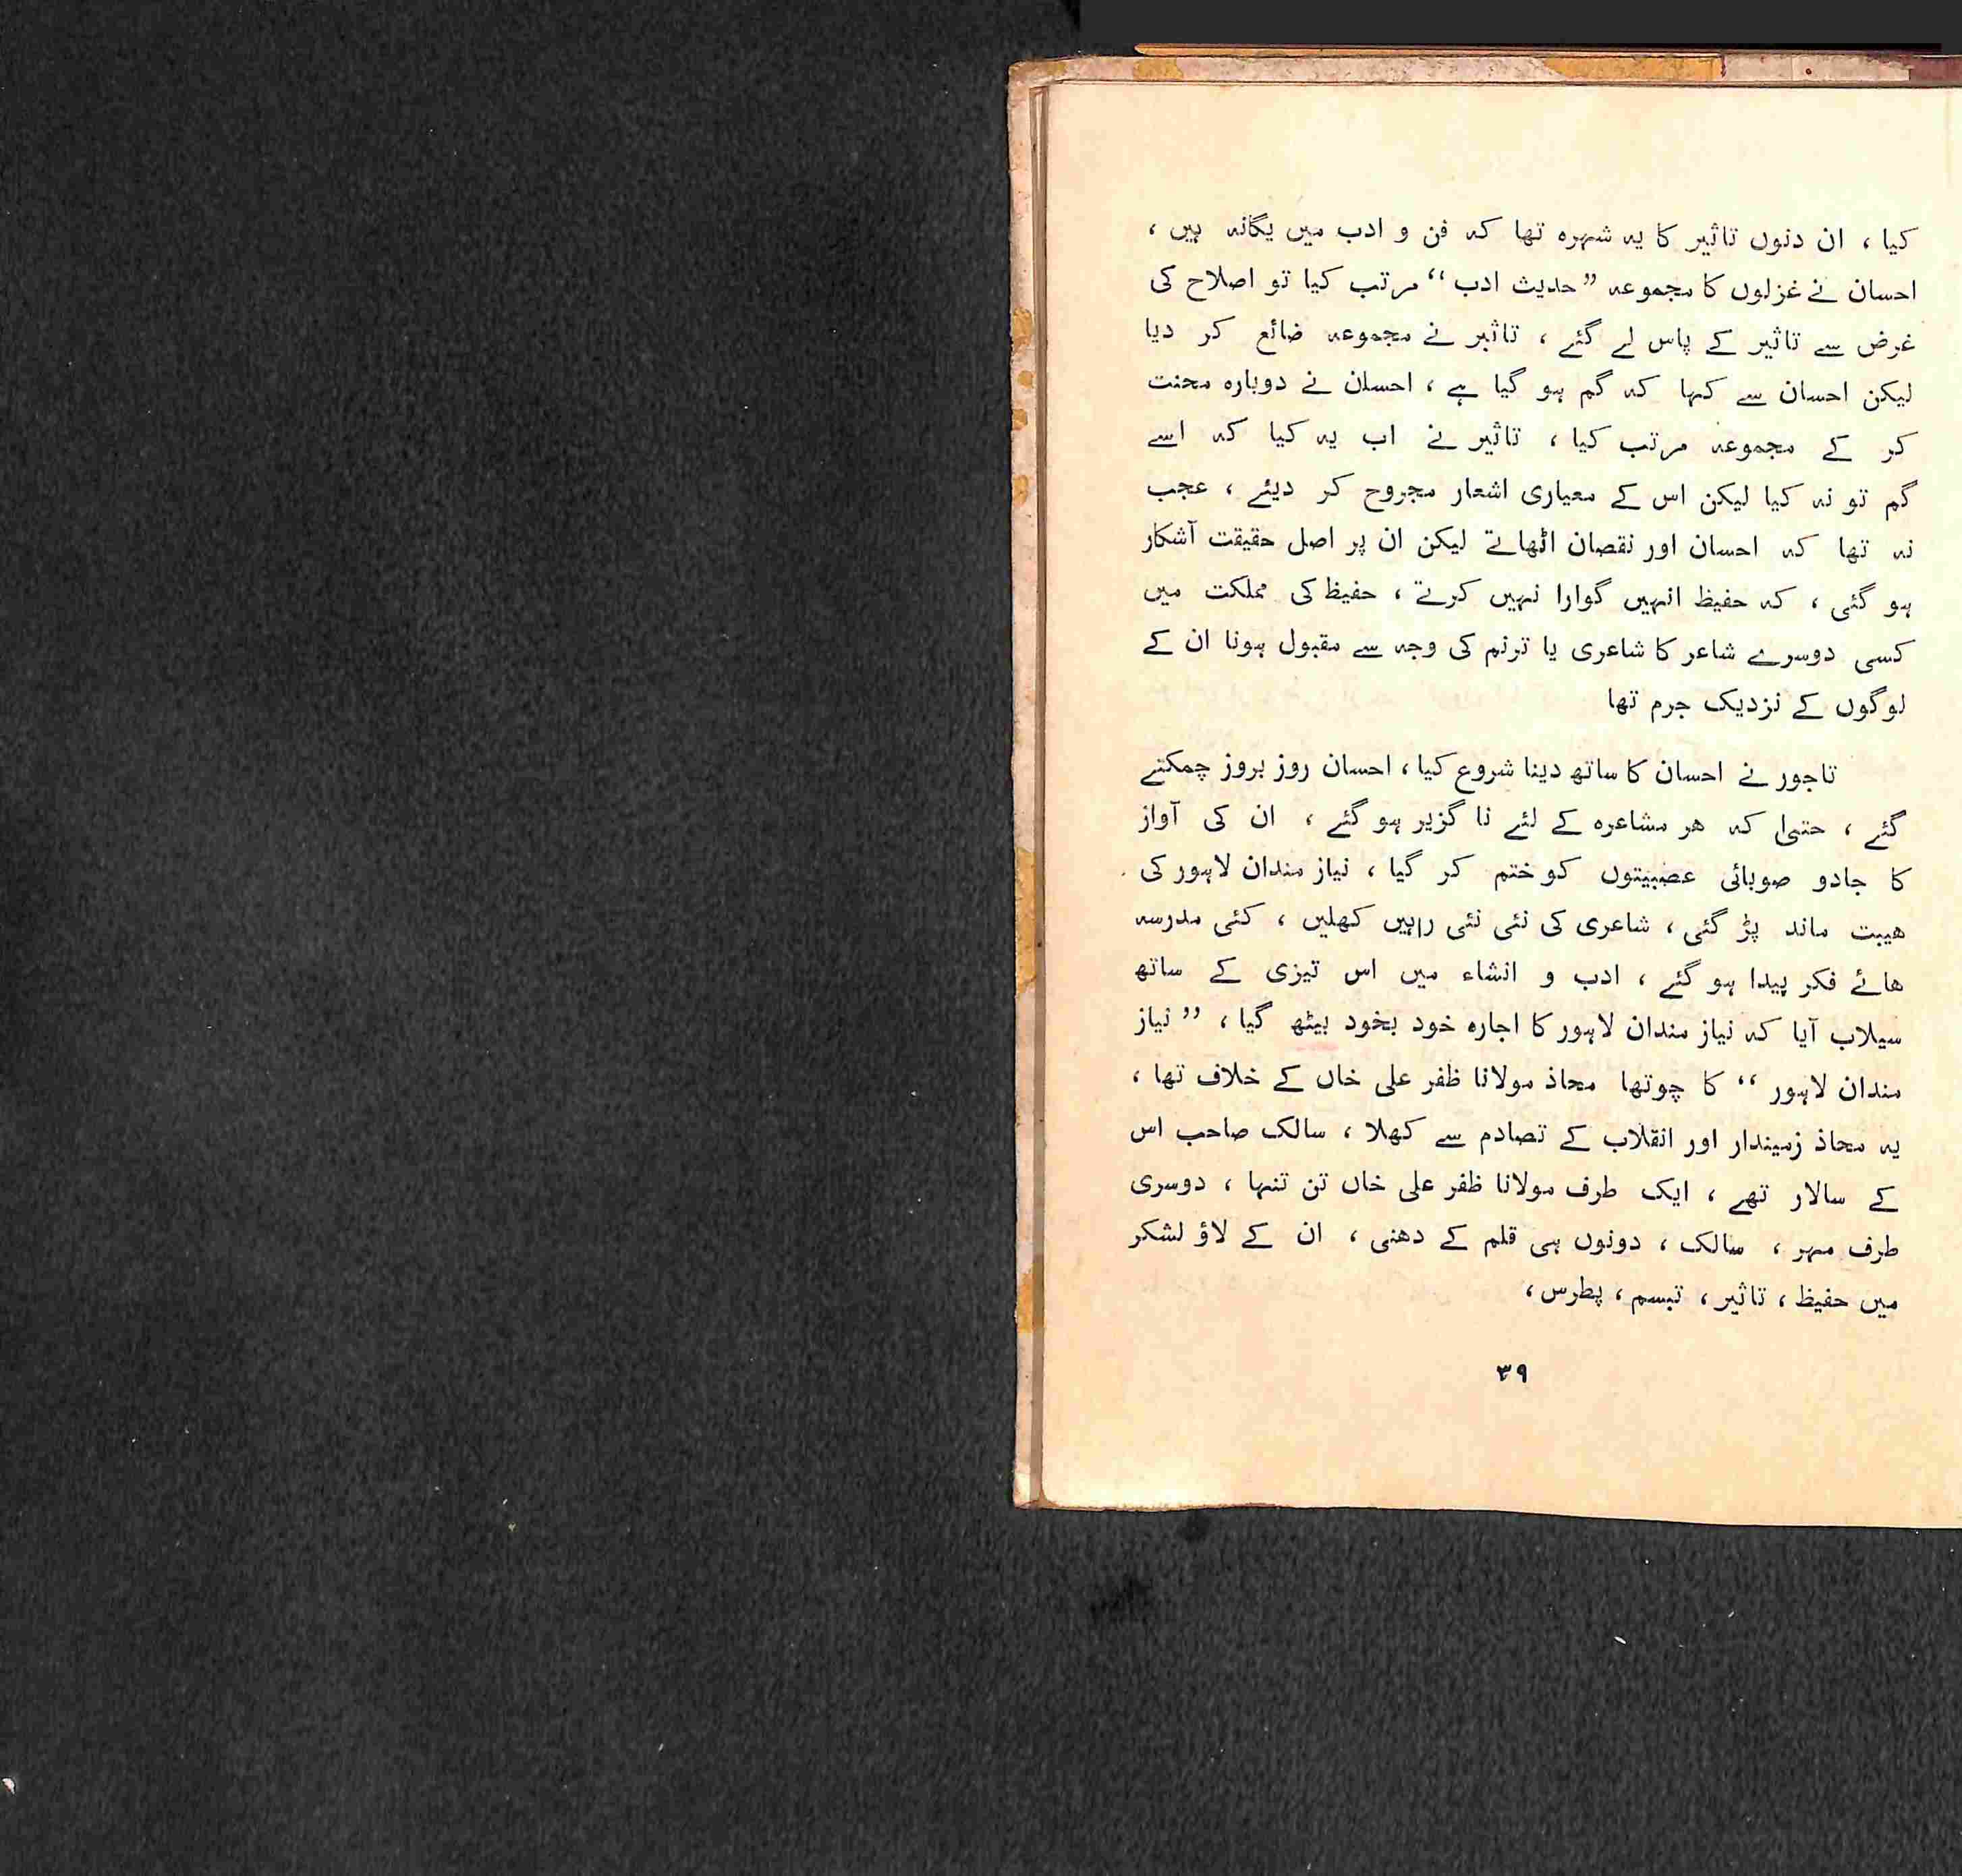 کیا ، ان دنوں تاثیر کا یہ شہرہ تھا کہ فن و ادب میں یگانہ ہیں ،
احسان نے غزلوں کا مجموعہ ”حدیث ادب“ مرتب کیا تو اصلاح کی
غرض سے تاثیر کے پاس لے گئے ، تاثیر نے مجموعہ ضائع کر دیا
لیکن احسان سے کہا کہ گم ہو گیا ہے ، احسان نے دوبارہ محنت
کر کے مجموعہ مرتب کیا ، تاثیر نے اب یہ کیا کہ اسے
گم تو نہ کیا لیکن اس کے معیاری اشعار مجروح کر دیئے ، عجب
نہ تھا کہ احسان اور نقصان اٹھاتے لیکن ان پر اصل حقیقت آشکار
ہو گئی ، کہ حفیظ انہیں گوارا نہیں کرتے ، حفیظ کی مملکت میں
کسی دوسرے شاعر کا شاعری یا ترنم کی وجہ سے مقبول ہونا ان کے
لوگوں کے نزدیک جرم تھا
تاجور نے احسان کا ساتھ دینا شروع کیا ، احسان روز بروز چمکتے
گئے ، حتیٰ کہ ھر مشاعرہ کے لئے نا گزیر ہو گئے ، ان کی آواز
کا جادو صوبائی عصبیتوں کو ختم کر گیا ، نیاز مندان لاہور کی
ھیبت ماند پڑ گئی ، شاعری کی نئی نئی راہیں کھلیں ، کئی مدرسہ
ھائے فکر پیدا ہو گئے ، ادب و انشاء میں اس تیزی کے ساتھ
سیلاب آیا کہ نیاز مندان لاہور کا اجارہ خود بخود بیٹھ گیا ، ”نیاز
مندان لاہور“ کا چوتھا محاذ مولانا ظفر علی خاں کے خلاف تھا ،
یہ محاذ زمیندار اور انقلاب کے تصادم سے کھلا ، سالک صاحب اس
کے سالار تھے ، ایک طرف مولانا ظفر علی خاں تن تنہا ، دوسری
طرف مہر ، سالک ، دونوں ہی قلم کے دھنی ، ان کے لاؤ لشکر
میں حفیظ ، تاثیر ، تبسم ، پطرس ،
۳۹